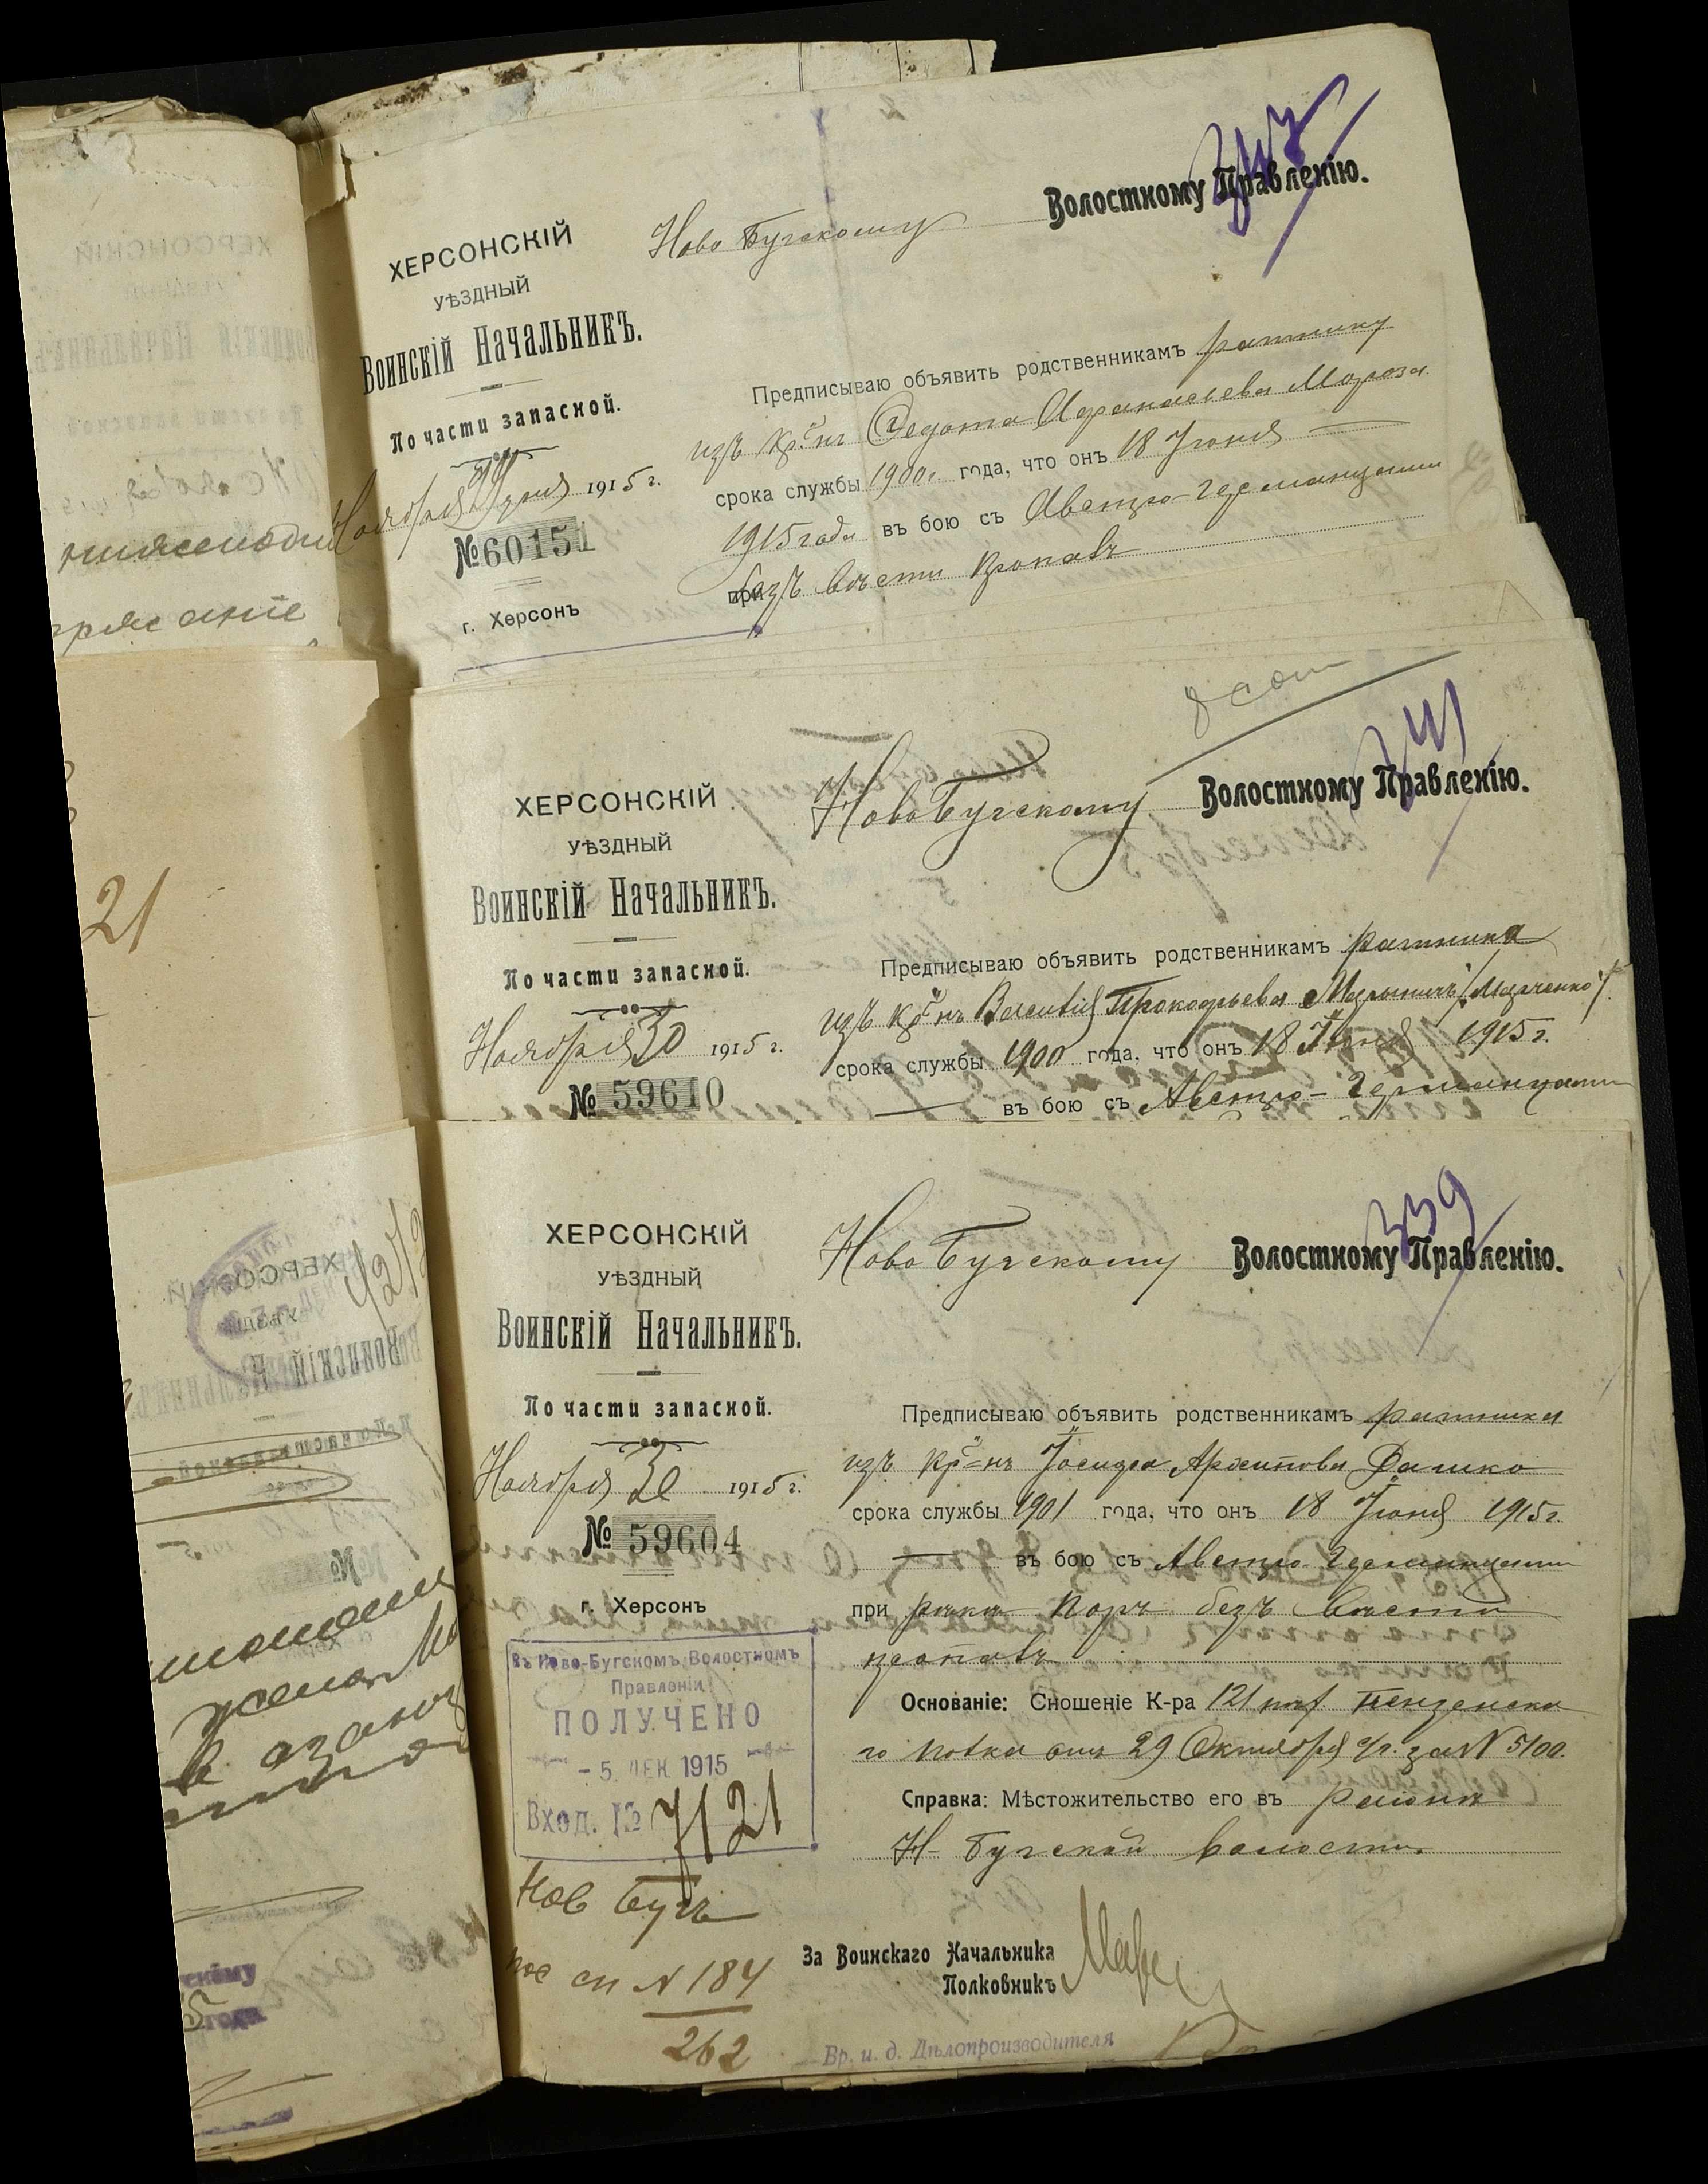 347
Ново Бугскому Волостному Правленію.
ХЕРСОНСКІЙ
УѢЗДНЫЙ
ВОИНСКІЙ НАЧАЛЬНИКЪ.
По части запасной.
Ноября 1915 г.
№ 60151
г. Херсонъ
Предписываю объявить родственникамъ ратнику
изъ кр-нъ Федота Афанасьева Мороза
срока службы 1900 г. года, что онъ 18 Іюня
1915 года въ бою съ Австро-Германцами
при безъ вѣсти пропавъ
341
Ново Бугскому Волостному Правленію.
ХЕРСОНСКІЙ
УѢЗДНЫЙ
ВОИНСКІЙ НАЧАЛЬНИКЪ.
По части запасной.
Ноября 30 1915 г.
№ 59610
Предписываю объявить родственникамъ ратника
изъ кр-нъ Василія Прокофьева /Марченко/
срока службы 1900 года, что онъ 18 Іюня 1915 г.
въ бою съ Австро-Германцами
339
Ново Бугскому Волостному Правленію.
ХЕРСОНСКІЙ
УѢЗДНЫЙ
ВОИНСКІЙ НАЧАЛЬНИКЪ.
По части запасной.
Ноября 30 1915 г.
№ 59604
г. Херсонъ
Предписываю объявить родственникамъ ратника
изъ кр-нъ Іосифа Архипова Дашко
срока службы 1901 года, что онъ 18 Іюня 1915 г.
въ бою съ Австро-Германцами
при рѣкѣ Поръ безъ вѣсти
пропавъ
Основаніе: Сношеніе К-ра 121 пѣх. Пензенска
го полка отъ 29 Октября с/г. за № 5100.
Справка: Мѣстожительство его въ районѣ
Н-Бугской волости.
Въ Ново-Бугскомъ Волостномъ
Правленіи
ПОЛУЧЕНО
- 5. ДЕК 1915
Вход. № 7121
Нов Бугъ
пос сп № 184
262
За Воинскаго Начальника
Полковникъ
Вр. и. д. Дѣлопроизводителя
21